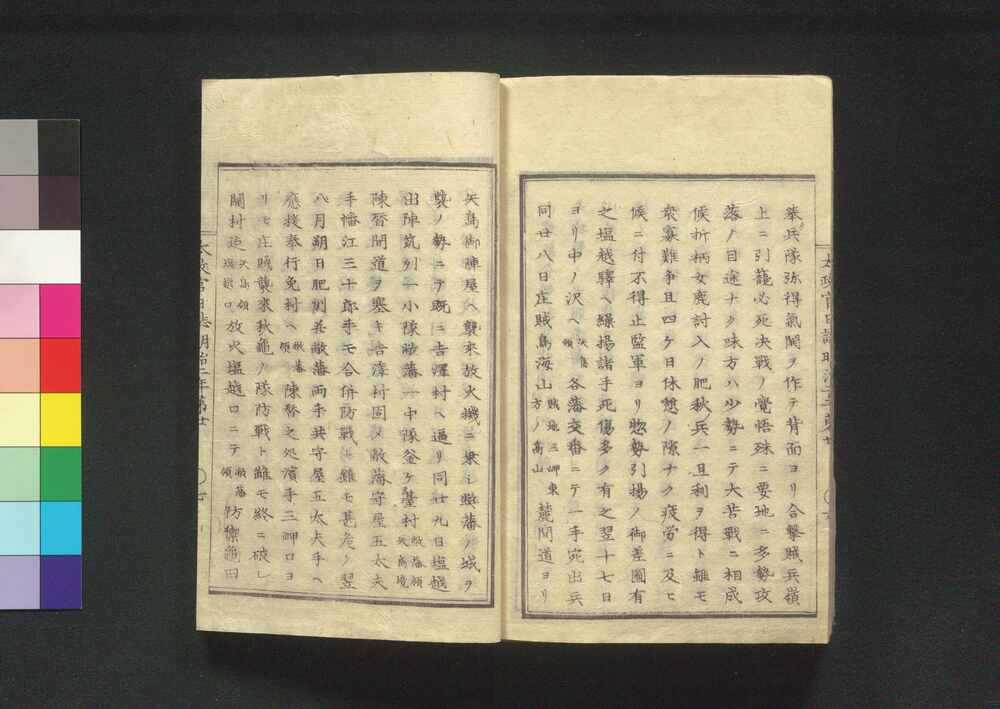 拳兵隊弥得氣関ヲ作テ背面ヨリ合撃賊兵嶺
上ニ引籠必死決戦ノ覺悟殊ニ要地ニ多勢攻
落ノ目途ナク味方ハ少勢ニテ大苦戰ニ相成
候折柄女鹿討入ノ肥秋兵一旦利ヲ得ト雖モ
衆寡難争且四ケ日休憩ノ隙ナク疲労ニ及ヒ
候ニ付不得止監軍ヨリ惣勢引揚ノ御差圖有
之塩越驛ヘ繰揚諸手死傷多ク有之翌十七日
ヨリ中ノ沢ヘ矢島領各藩交番ニテ一手宛出兵
同廿八日庄賊鳥海山賊地三岬東方ノ高山麓間道ヨリ
矢島御陣屋ヘ襲来放火機ニ乗シ弊藩ノ城ヲ
襲ノ勢ニテ既ニ吉澤村ヘ逼リ同廿九日塩越
出陣筑州一小隊弊藩一中隊釜ケ臺村弊藩領矢島境
陳督間道ヲ塞キ吉澤村固メ弊藩守屋五太夫
手幡江三十郎手モ合併防戰ト雖モ甚危ク翌
八月朔日肥州并弊藩両手共守屋五太夫手ヘ
應援奉行免村ヘ弊藩領陳替之処濱手三岬口ヨ
リモ庄賊襲来秋亀ノ隊防戦ト雖モ終ニ破レ
関村迠矢島領塩越口放火塩越口ニテ弊藩領防禦亀田
太政官日誌明治二年第廿